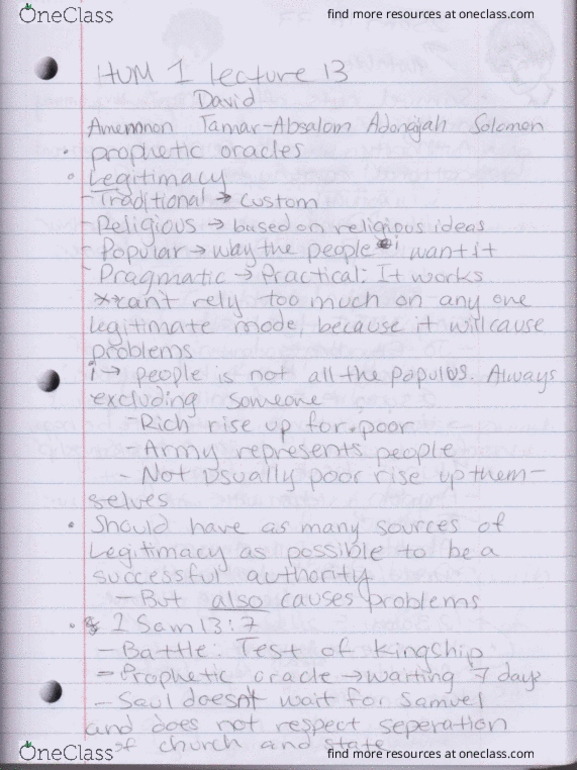 OneClass find more resources at oneclass.com
HUM 1 lecture 13
David
Amemnon Tamar-Absalom Adonajah Solomon
• prophetic oracles
• Legitimacy
- Traditional → custom
- Religious → based on religious ideas
- Popular → way the people i want it
- Pragmatic → Practical: It works
**can't rely too much on any one
legitimate mode, because it will cause
problems
i → people is not all the populus. Always
excluding someone
- Rich rise up for poor
- Army represents people
- Not usually poor rise up them-
selves
• Should have as many sources of
Legitimacy as possible to be a
successful authority
- But also causes problems
• 1 Sam 13:7
- Battle: Test of Kingship
- Prophetic oracle → waiting 7 days
- Saul doesn't wait for Samuel
and does not respect seperation
of church and state
OneClass find more resources at oneclass.com